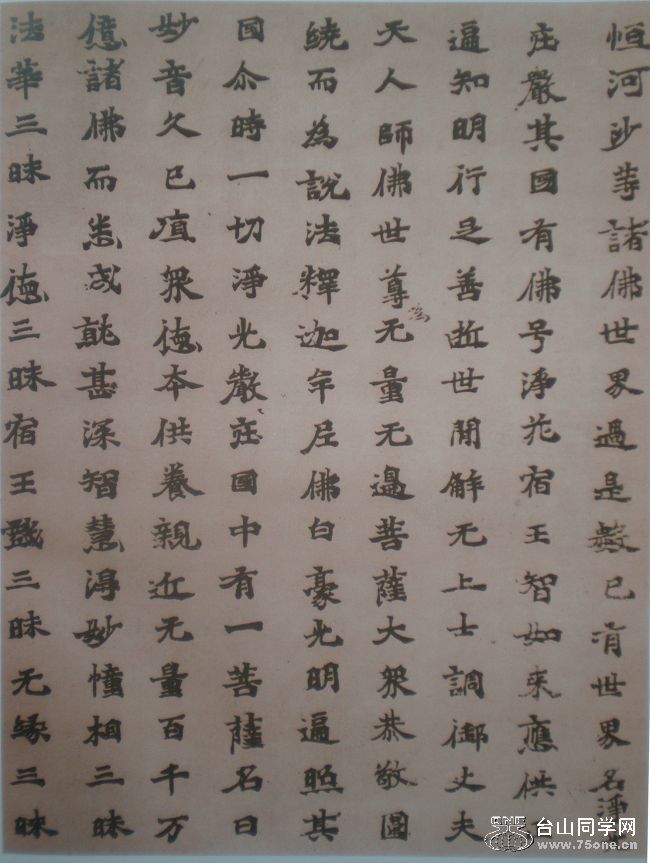 恒河沙等諸佛世界過是數已有世界名淨
庄嚴其國有佛号淨花宿王智如來應供
遍知明行足善逝世間解无上士調御丈夫
天人師佛世尊為无量无邊菩薩大眾恭敬圍
繞而為說法釋迦牟尼佛白豪光明遍照其
國尒時一切淨光嚴庄國中有一菩薩名曰
妙音久已殖眾德本供養親近无量百千万
億諸佛而悉成就甚深智慧得妙幢相三昧
法華三昧淨德三昧宿王戲三昧无緣三昧
ONE 台山同学网
www.75one.cn